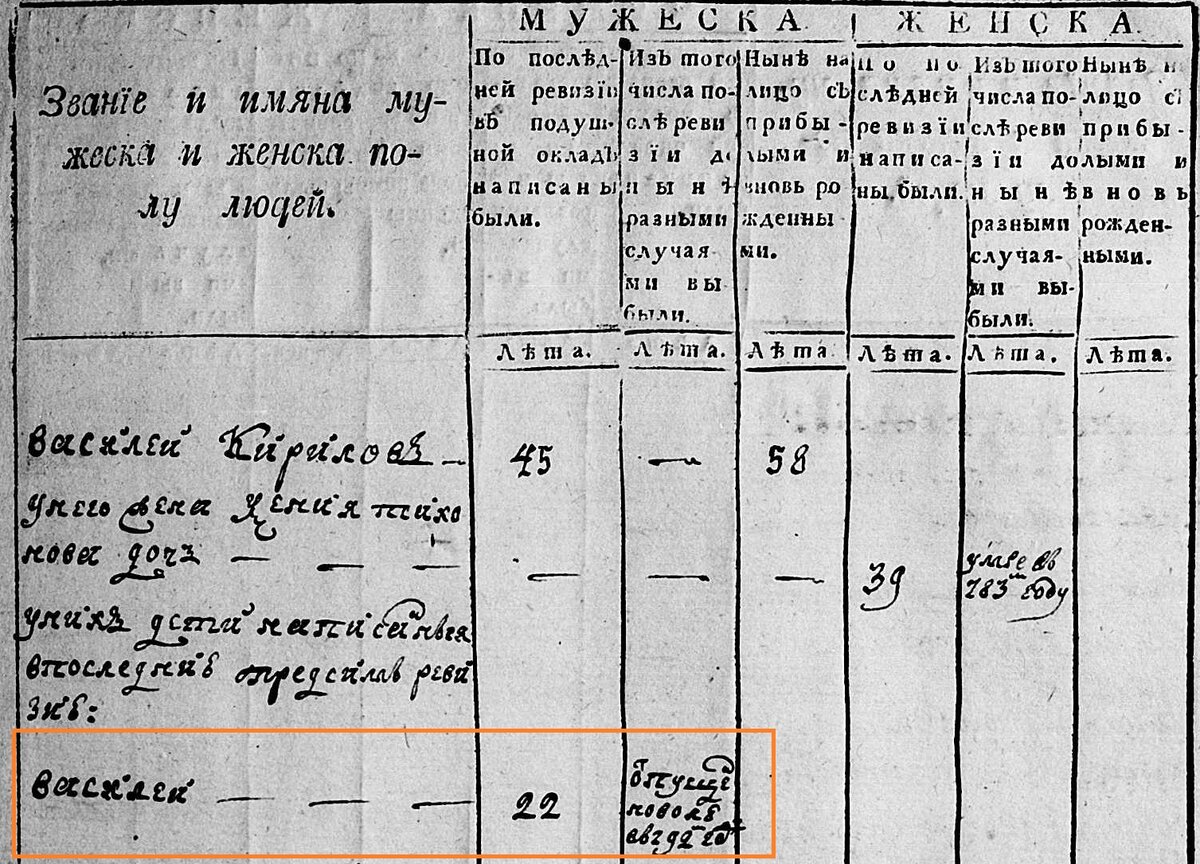 МУЖЕСКА.
ЖЕНСКА.
Званїе и имяна му-
жеска и женска по-
лу людей.
По послѣд-
ней ревизіи
въ подуш-
ной окладъ
написаны
были.
Изъ того
числа по-
слѣ реви
зїи до
нынѣ
разными
случая-
ми вы
были.
Нынѣ на
лицо съ
прибы-
лыми и
вновь ро
жденны
ми.
По по
слѣдней
ревизїи
написа-
ны были.
Изъ того
числа по-
слѣ реви
зїи до
нынѣ
разными
случая-
ми вы-
были.
Нынѣ н
лицо с
прибы-
лыми и
вновь
рожден-
ными.
Лѣта. Лѣта. Лѣта. Лѣта. Лѣта. Лѣта.
Василей Кириловъ 45 — 58
унего жена Ксения тихо
нова дочь — — — — — — 39
умре въ
783м году
унихъ дети написанныя
впоследней предсимъ реви
зие:
Василей — — — 22
отпущен